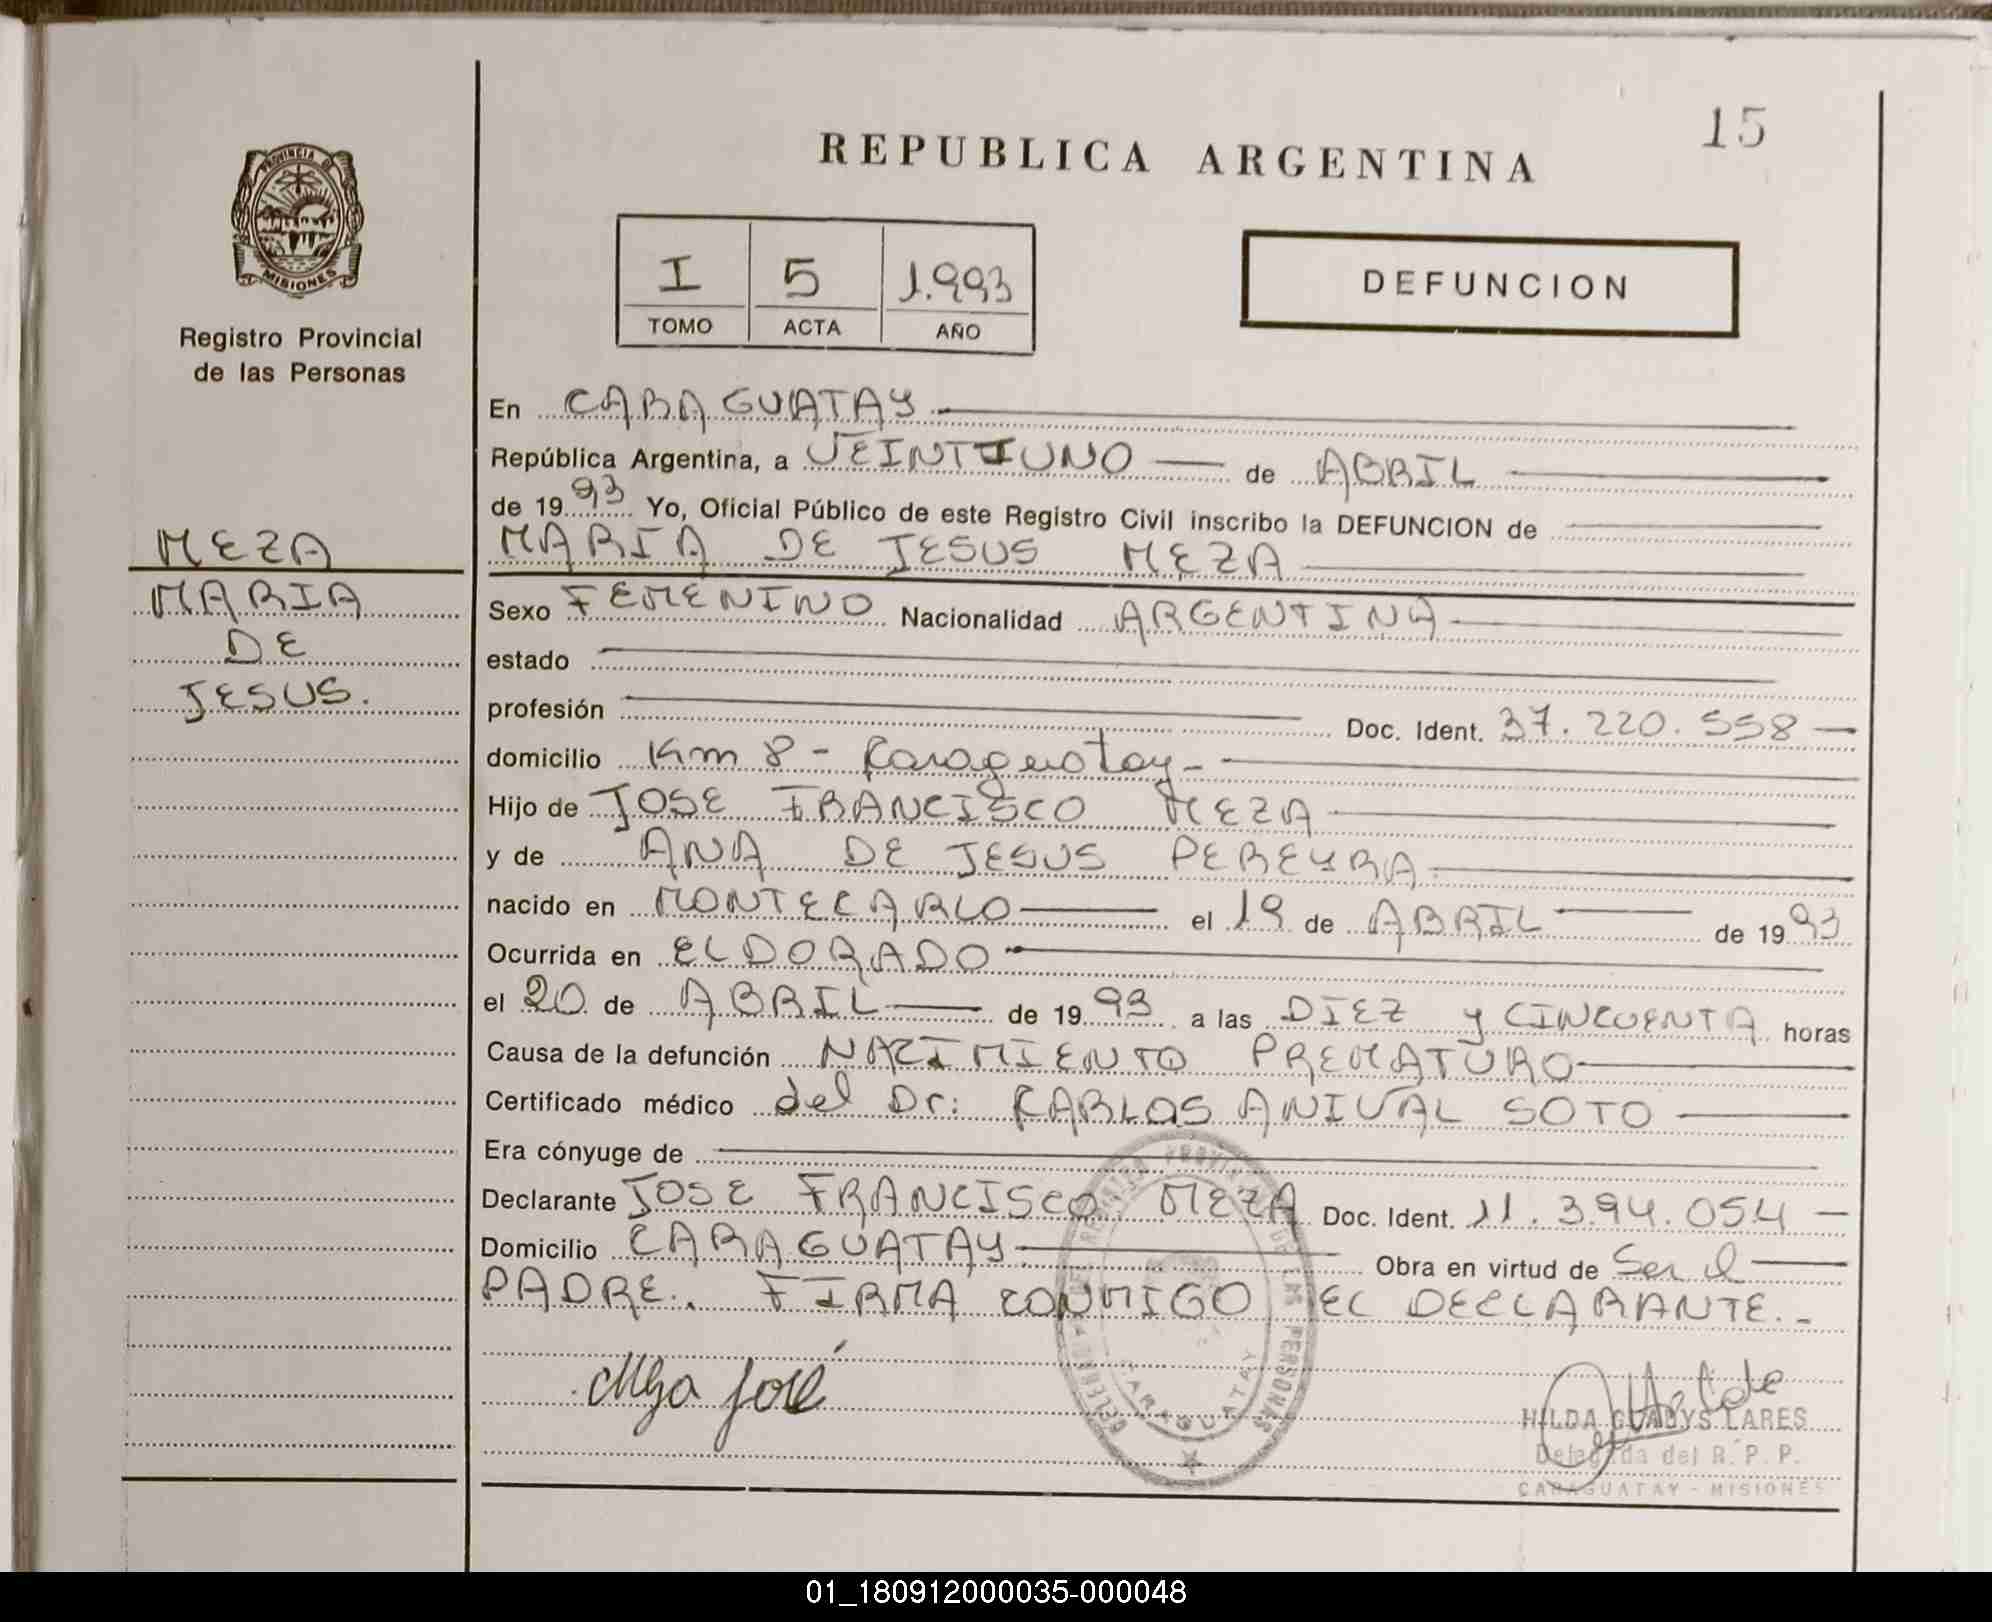 15
REPUBLICA ARGENTINA
PROVINCIA DE
MISIONES
Registro Provincial
de las Personas
I 5 1.993
TOMO ACTA AÑO
DEFUNCION
En CARAGUATAY
República Argentina, a VEINTIUNO de ABRIL
de 1993 Yo, Oficial Público de este Registro Civil inscribo la DEFUNCION de
MARIA DE JESUS MEZA
MEZA
MARIA
DE
JESUS.
Sexo FEMENINO Nacionalidad ARGENTINA
estado
profesión Doc. Ident. 37.220.558
domicilio Km 8 - Caraguatay -
Hijo de JOSE FRANCISCO MEZA
y de ANA DE JESUS PEREYRA
nacido en MONTECARLO el 19 de ABRIL de 1993
Ocurrida en ELDORADO
el 20 de ABRIL de 1993 a las DIEZ y CINCUENTA horas
Causa de la defunción NACIMIENTO PREMATURO
Certificado médico del Dr: CARLOS ANIVAL SOTO
Era cónyuge de
Declarante JOSE FRANCISCO MEZA Doc. Ident. 11.394.054
Domicilio CARAGUATAY Obra en virtud de Ser el
PADRE. FIRMA CONMIGO EL DECLARANTE.-
REGISTRO PROVINCIAL DE LAS PERSONAS
CARAGUATAY
José
HILDA GLADYS LARES
Delegada del R. P. P.
CARAGUATAY - MISIONES
01_180912000035-000048